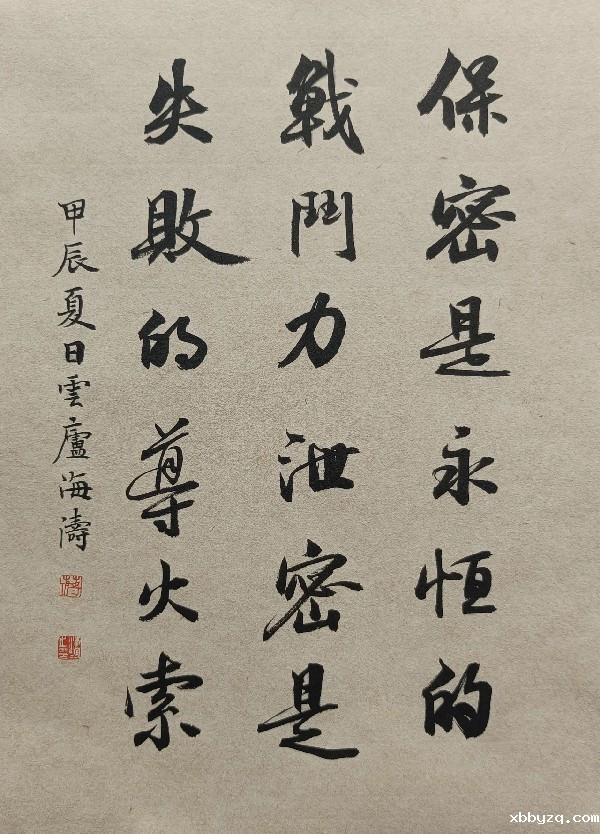 保密是永恒的
戰鬥力泄密是
失敗的導火索
甲辰夏日雲廬海濤
xbbyzq.com